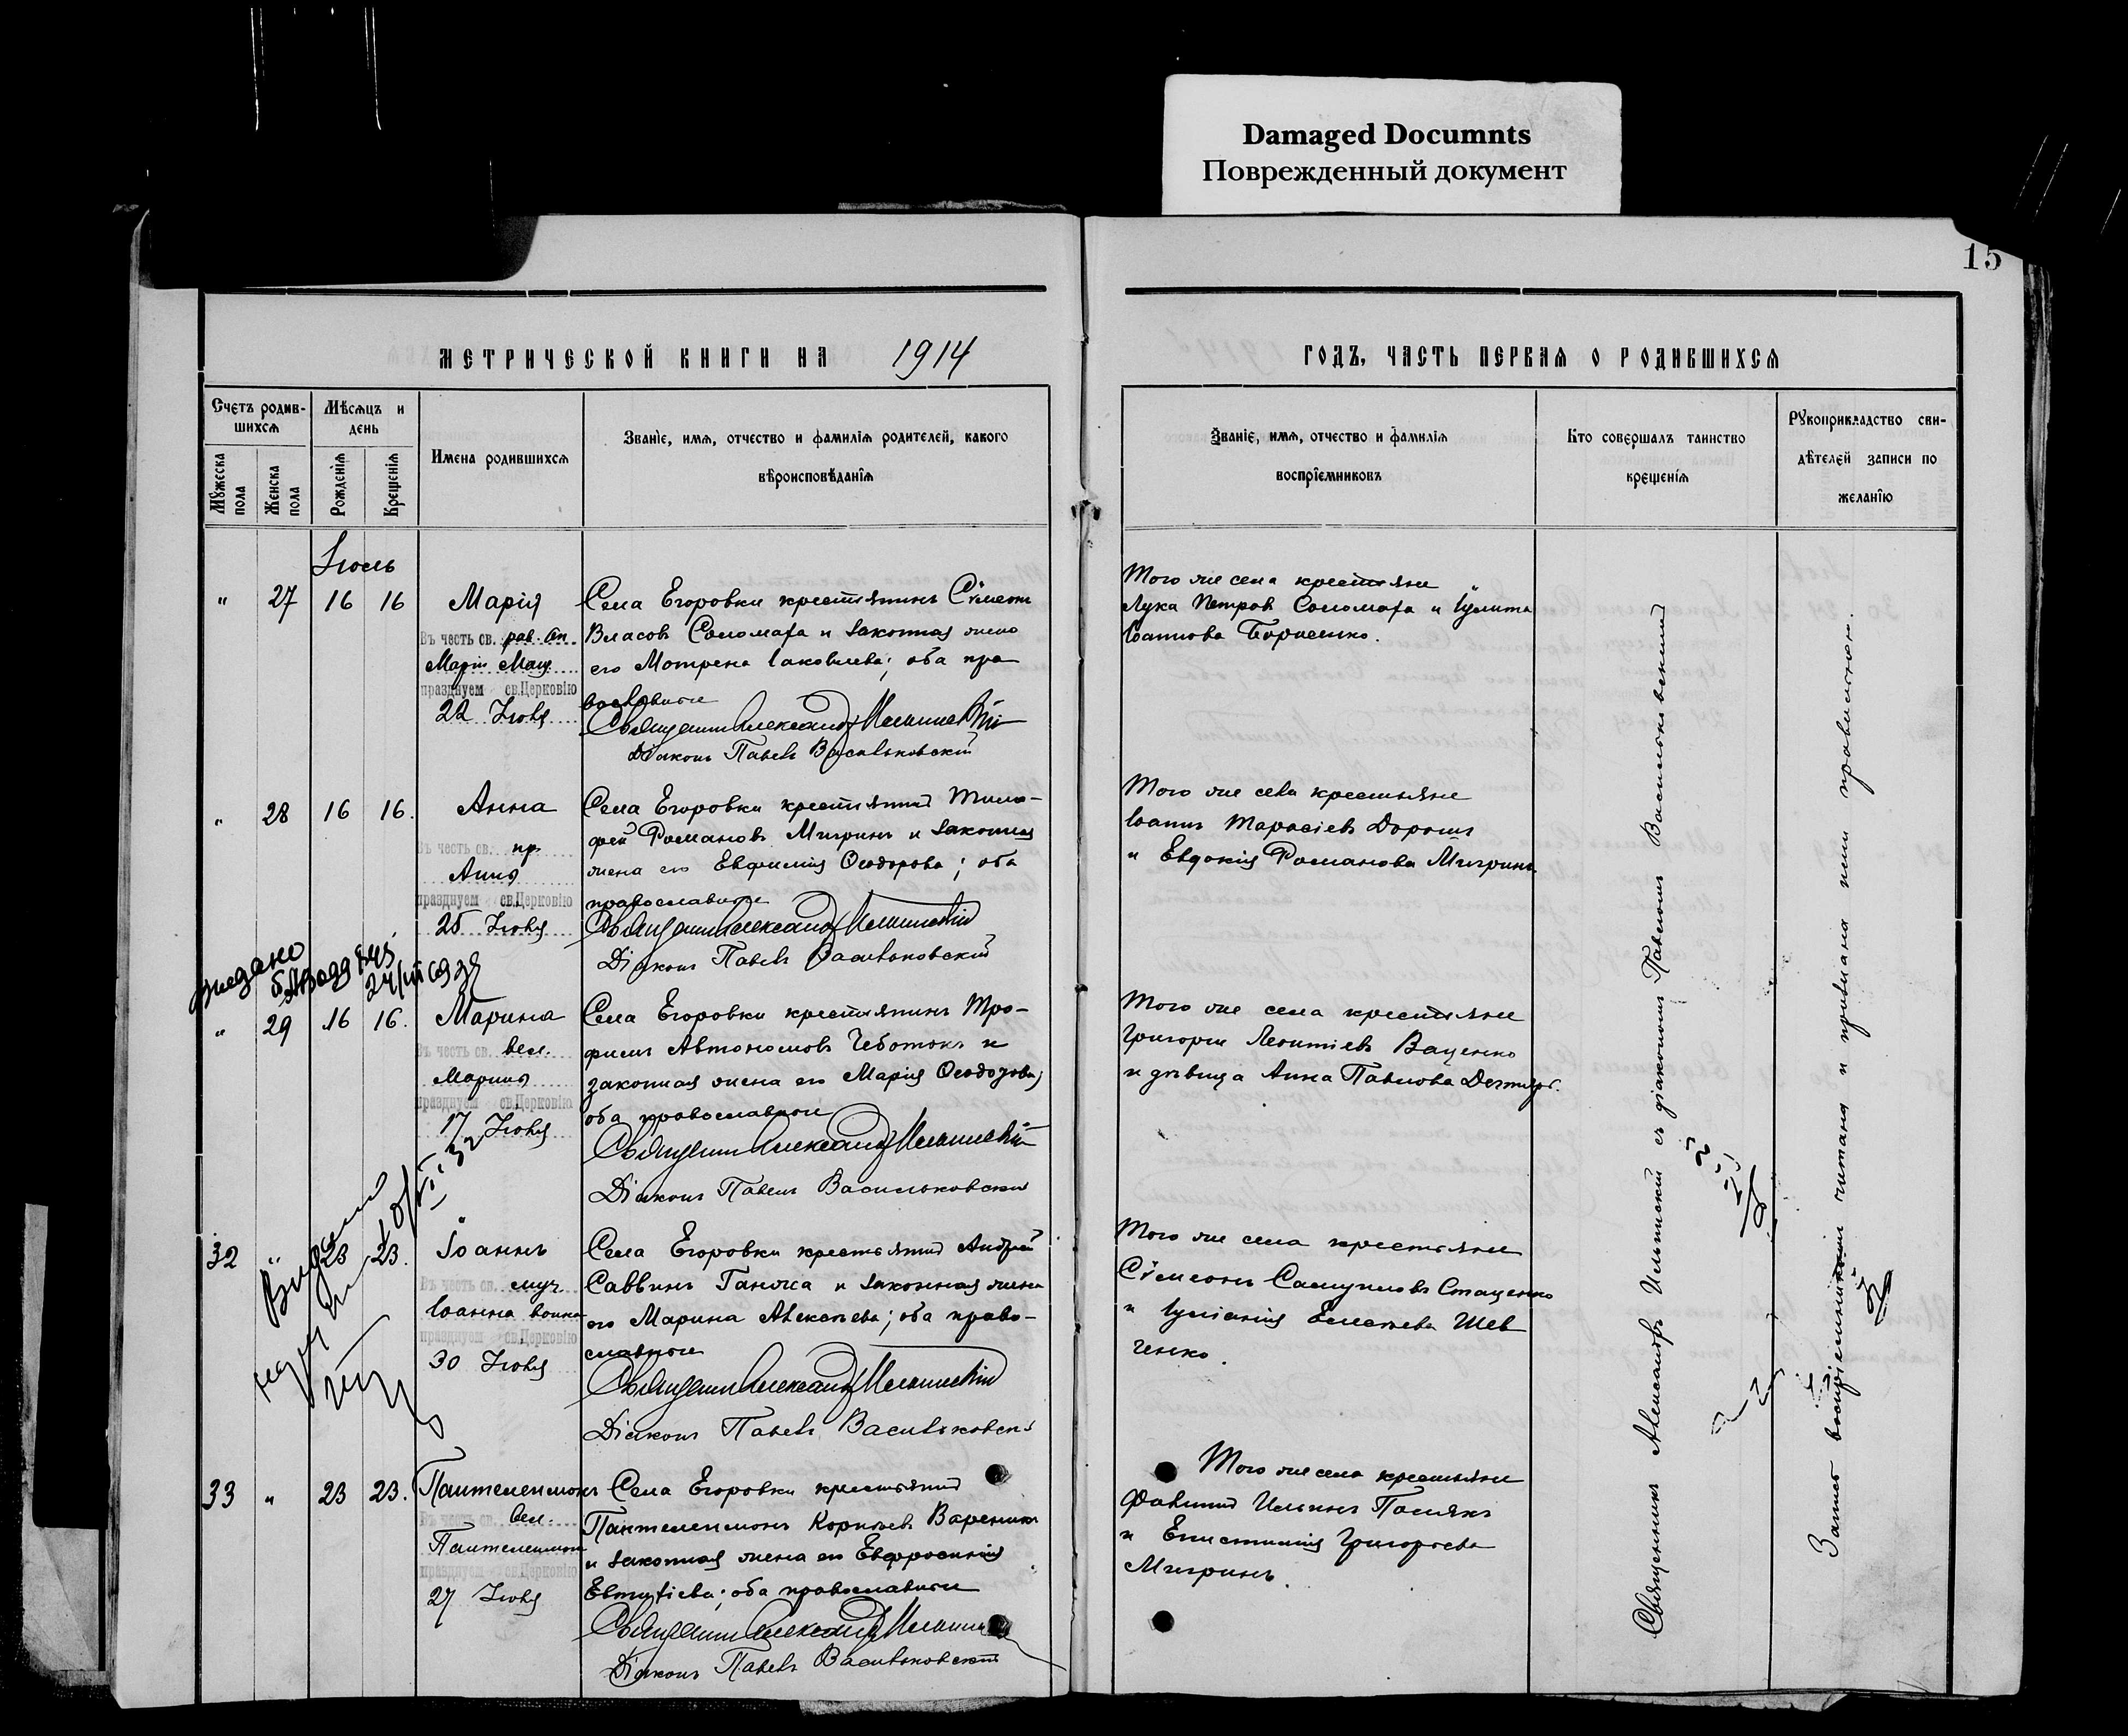 Damaged Documnts
Поврежденный документ
15
МЕТРИЧЕСКОЙ КНИГИ НА 1914
ГОДЪ, ЧАСТЬ ПЕРВАЯ О РОДИВШИХСЯ
Счетъ родив-
шихся
Мужеска пола
Женска пола
Мѣсяцъ и
день
Рожденія
Крещенія
Имена родившихся
Званіе, имя, отчество и фамилія родителей, какого
вѣроисповѣданія
Званіе, имя, отчество и фамилія
воспріемниковъ
Кто совершалъ таинство
крещенія
Рукоприкладство сви-
дѣтелей записи по
желанію
Іюль
" 27 16 16 Марія
Въ честь св. рав. ап.
Маріи Маг.
празднуем св.Церковію
22 Іюля
Села Егоровки крестьянинъ Сѵмеонъ
Власовъ Соломаха и законная жена
его Мотрона Іаковлева; оба пра
вославные
Священникъ Александръ
Діаконъ Павелъ Васильковскій
Того же села крестьяне
Лука Петровъ Соломаха и Іулита
Іоаннова Борисенко.
" 28 16 16. Анна
Въ честь св. пр.
Анны
празднуем св.Церковію
25 Іюля
Села Егоровки крестьянинъ Тимо-
фей Романовъ Мигринъ и законная
жена его Евфимія Ѳеодорова; оба
православные
Священникъ Александръ
Діаконъ Павелъ Васильковскій
Того же села крестьяне
Іоаннъ Тарасіевъ Дорошъ
и Евдокія Романова Мигринъ
" 29 16 16. Марина
Въ честь св. вел.
Марины
празднуем св.Церковію
17 Іюля
Села Егоровки крестьянинъ Тро-
фимъ Автономовъ Чеботокъ и
законная жена его Марія
оба православные
Священникъ Александръ
Діаконъ Павелъ Васильковскій
Того же села крестьяне
Григорій Леонтіевъ Ваценко
и дѣвица Анна Павлова
32 " 23 23. Іоаннъ
Въ честь св. муч.
Іоанна воина
празднуем св.Церковію
30 Іюля
Села Егоровки крестьянинъ Андрей
Саввинъ Ганжа и законная жена
его Марина Алексѣева; оба право-
славные
Священникъ Александръ
Діаконъ Павелъ Васильковскій
Того же села крестьяне
Сѵмеонъ Самуиловъ Стаценко
и Іуліанія Елисѣева Шев
ченко.
33 " 23 23. Пантелеимонъ
Въ честь св. вел.
Пантелеимона
празднуем св.Церковію
27 Іюля
Села Егоровки крестьянинъ
Пантелеимонъ Корнѣевъ Вареникъ
и законная жена его Евфросинія
Евтихіева; оба православные
Священникъ Александръ
Діаконъ Павелъ Васильковскій
Того же села крестьяне
Филиппъ Ильинъ Полякъ
и Епистимія Григорьева
Мигринъ.
Священникъ Александръ Ильинскій съ діакономъ Павломъ Васильковскимъ